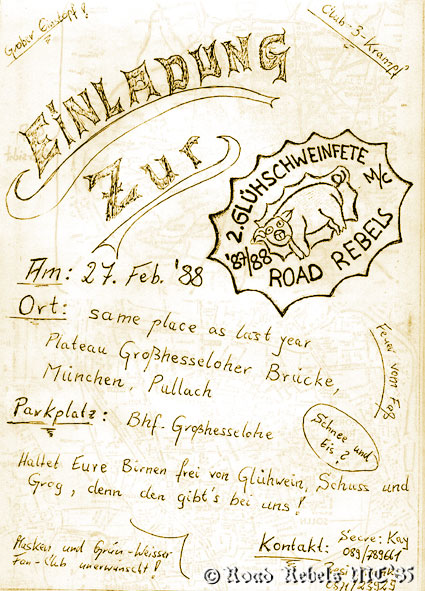 Grober Eintopf!
Club-3-Krampf!
EINLADUNG
Zur
2. GLÜHSCHWEINFETE
M/C
'87/88
ROAD REBELS
Am: 27. Feb. '88
Ort: same place as last year
Plateau Großhesseloher Brücke,
München, Pullach
Feuer vom Faß
Parkplatz: Bhf. Großhesselohe
Schnee und
Eis, ?
Haltet Eure Birnen frei von Glühwein, Schuss und
Grog, denn den gibt's bei uns!
Masken und Grün-Weisser
Fan-Club unerwünscht!
Kontakt: Secre: Kay
089/789661
© Road Rebels MC 85